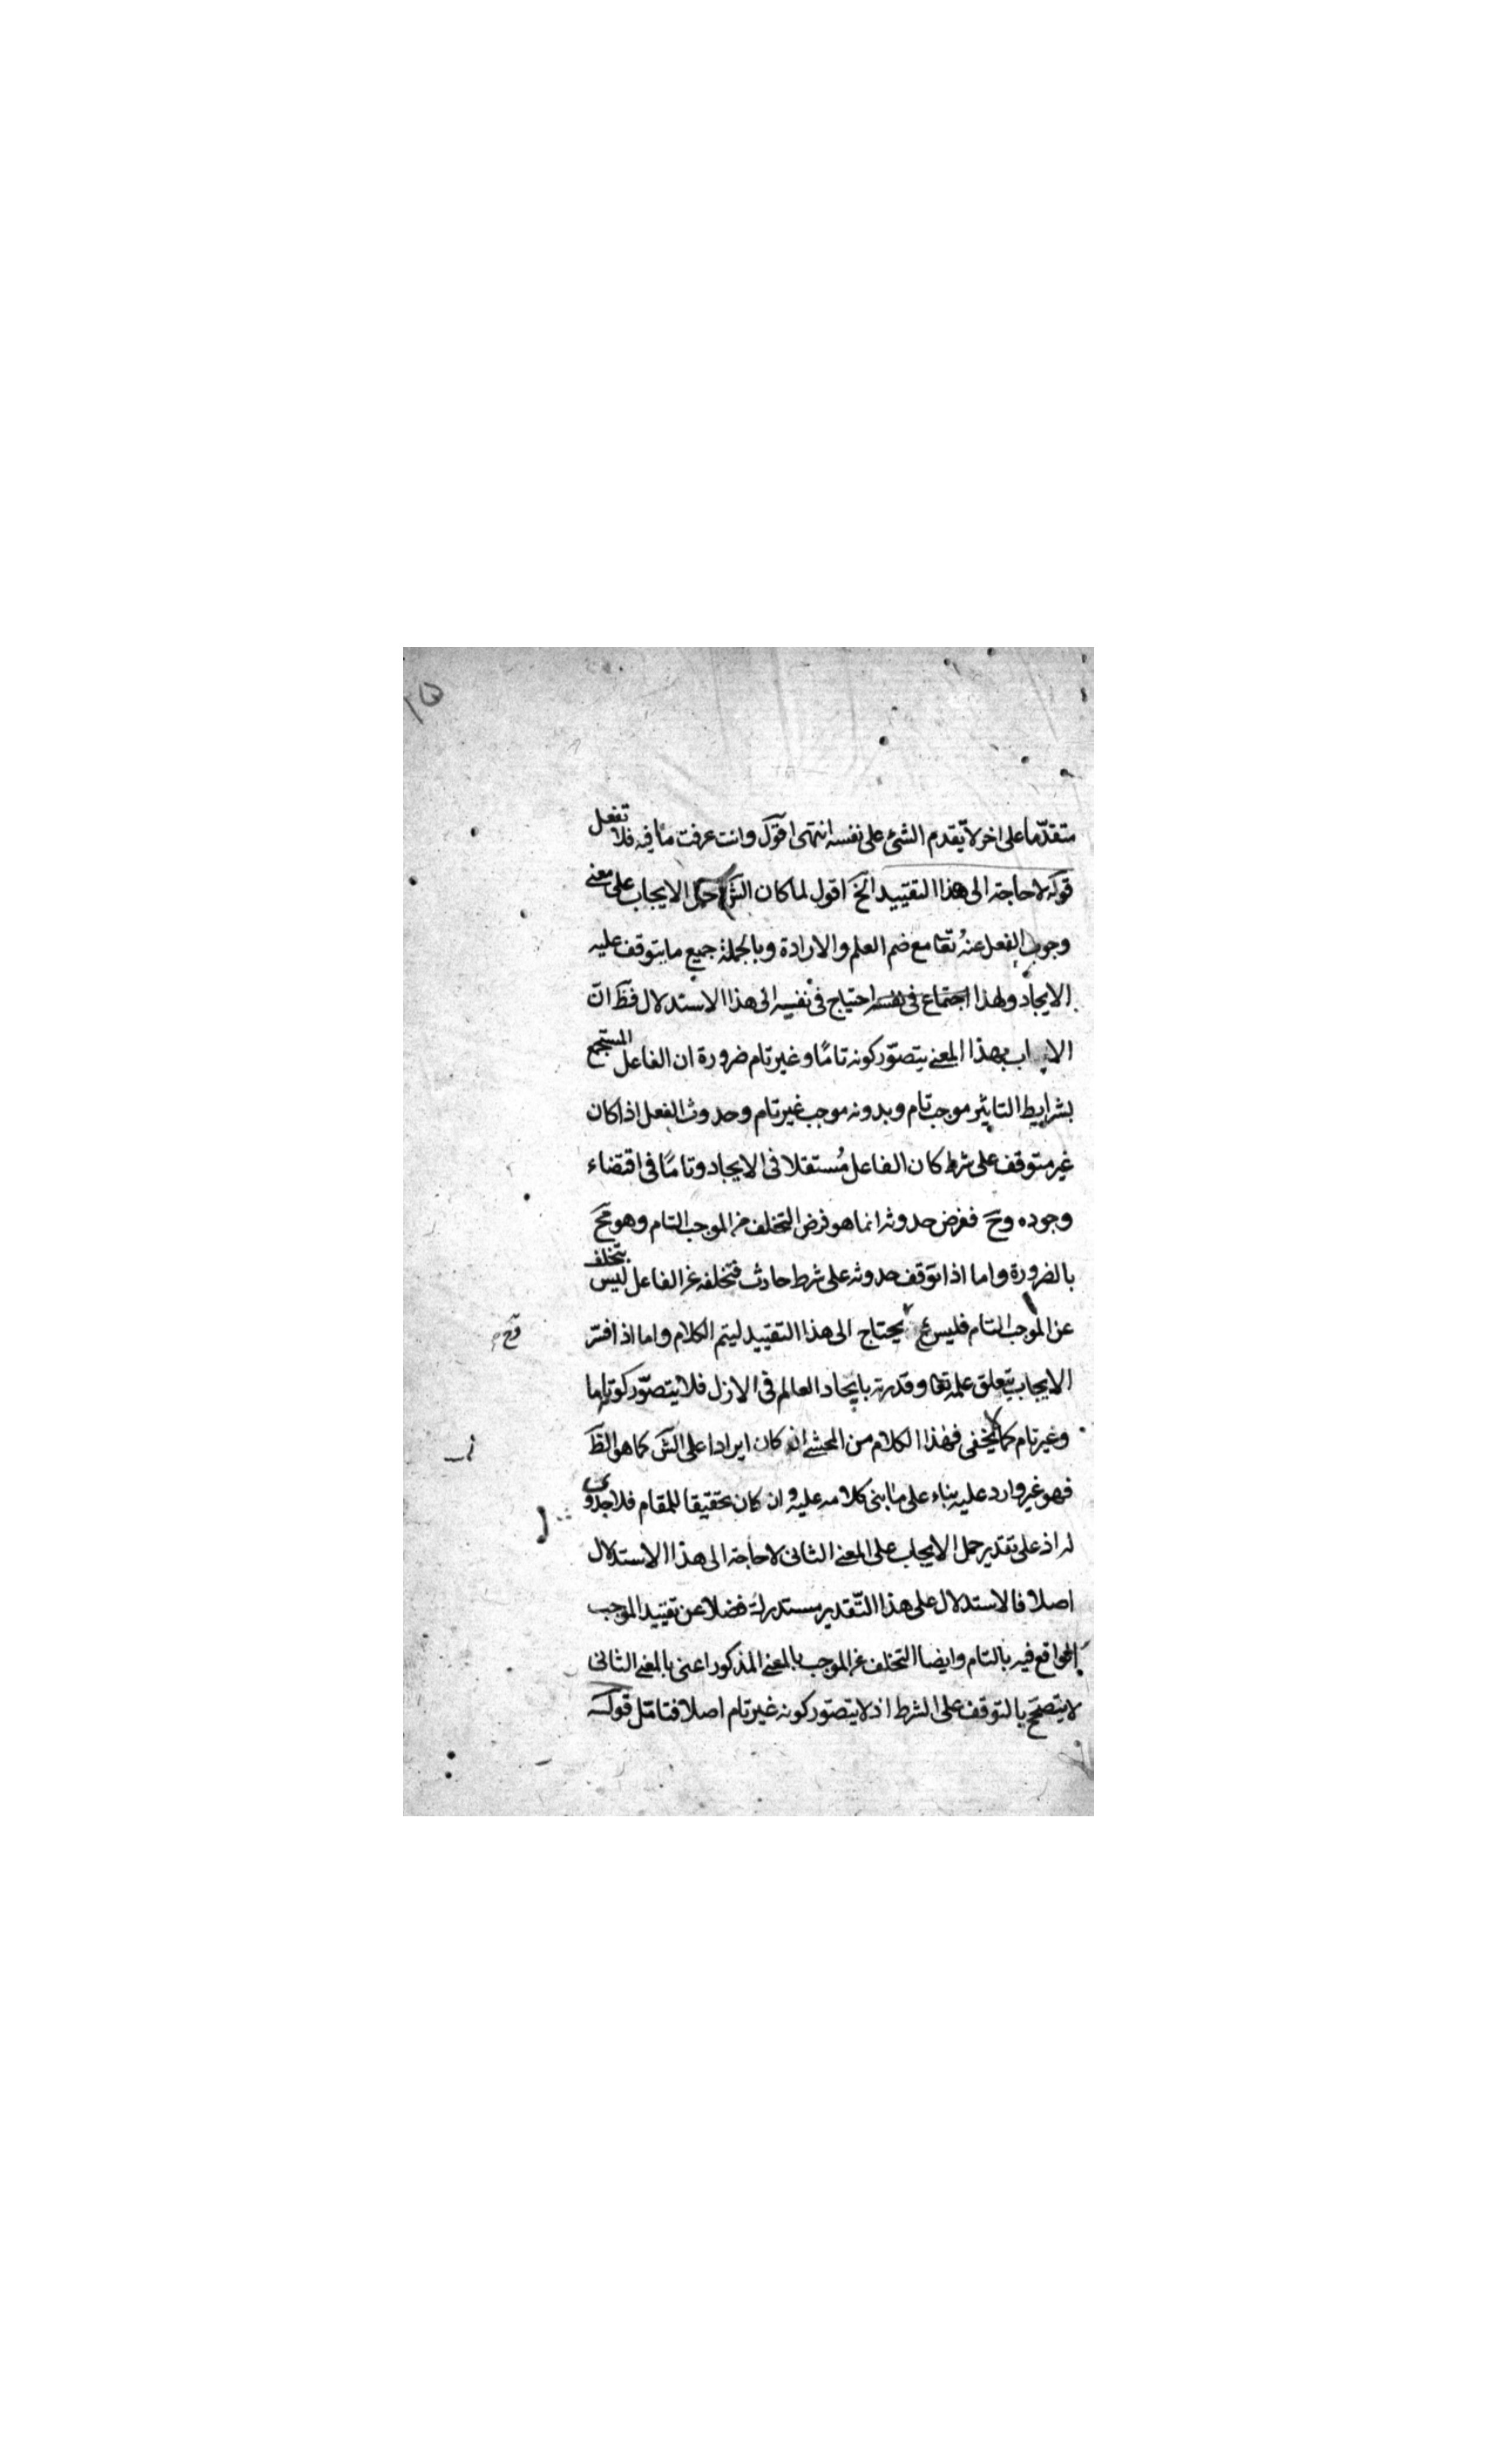 متقدّما على اخر لا يقدم الشئ على نفسه انتهى اقول وانت عرفت ما فيه فلا تفعل
قوله لا حاجة الى هذا التقييد الخ اقول لما كان الش حمل الايجاب على معنى
وجوب الفعل عنه تعا مع ضم العلم والارادة وبالجملة جميع ما يتوقف عليه
الايجاد ولهذا احتياج في نفسه الى هذا الاستدلال فظ انّ
بهذا المعنى يتصوّر كونه تامّا وغير تام ضرورة ان الفاعل المستجمع
بشرايط التاثير موجب تام وبدونه موجب غير تام وحدوث الفعل اذا كان
غير متوقف على شرط كان الفاعل مُستقلا فى الايجاد وتامّا فى اقتضاء
وجوده وح ففرض حدوثه انما هو فرض التخلف من الموجب التام وهو مح
بالضرورة واما اذا توقف حدوثه على شرط حادث فتخلفه عن الفاعل ليس بتخلف
عن الموجب التام فليس يحتاج الى هذا التقييد ليتم الكلام واما اذا فسّر
الايجاب بتعلق علمه تعا وقدرته بايجاد العالم فى الازل فلا يتصوّر كونه تاما
وغير تام كما لا يخفى فهذا الكلام من المحشى ان كان ايرادا على الش كما هو الظ
فهو غير وارد عليه بناء على ما بنى كلامه عليه وان كان تحقيقا للمقام فلا جدوى
له اذ على تقدير حمل الايجاب على المعنى الثانى لا حاجة الى هذا الاستدلال
اصلا فالاستدلال على هذا التّقدير مستدرك فضلا عن تقييد الموجب
الواقع فيه بالتام وايضا التخلف عن الموجب بالمعنى المذكور اعنى بالمعنى الثانى
لا يتصحّ بالتوقف على الشرط اذ لا يتصوّر كونه غير تام اصلا فتامّل قوله